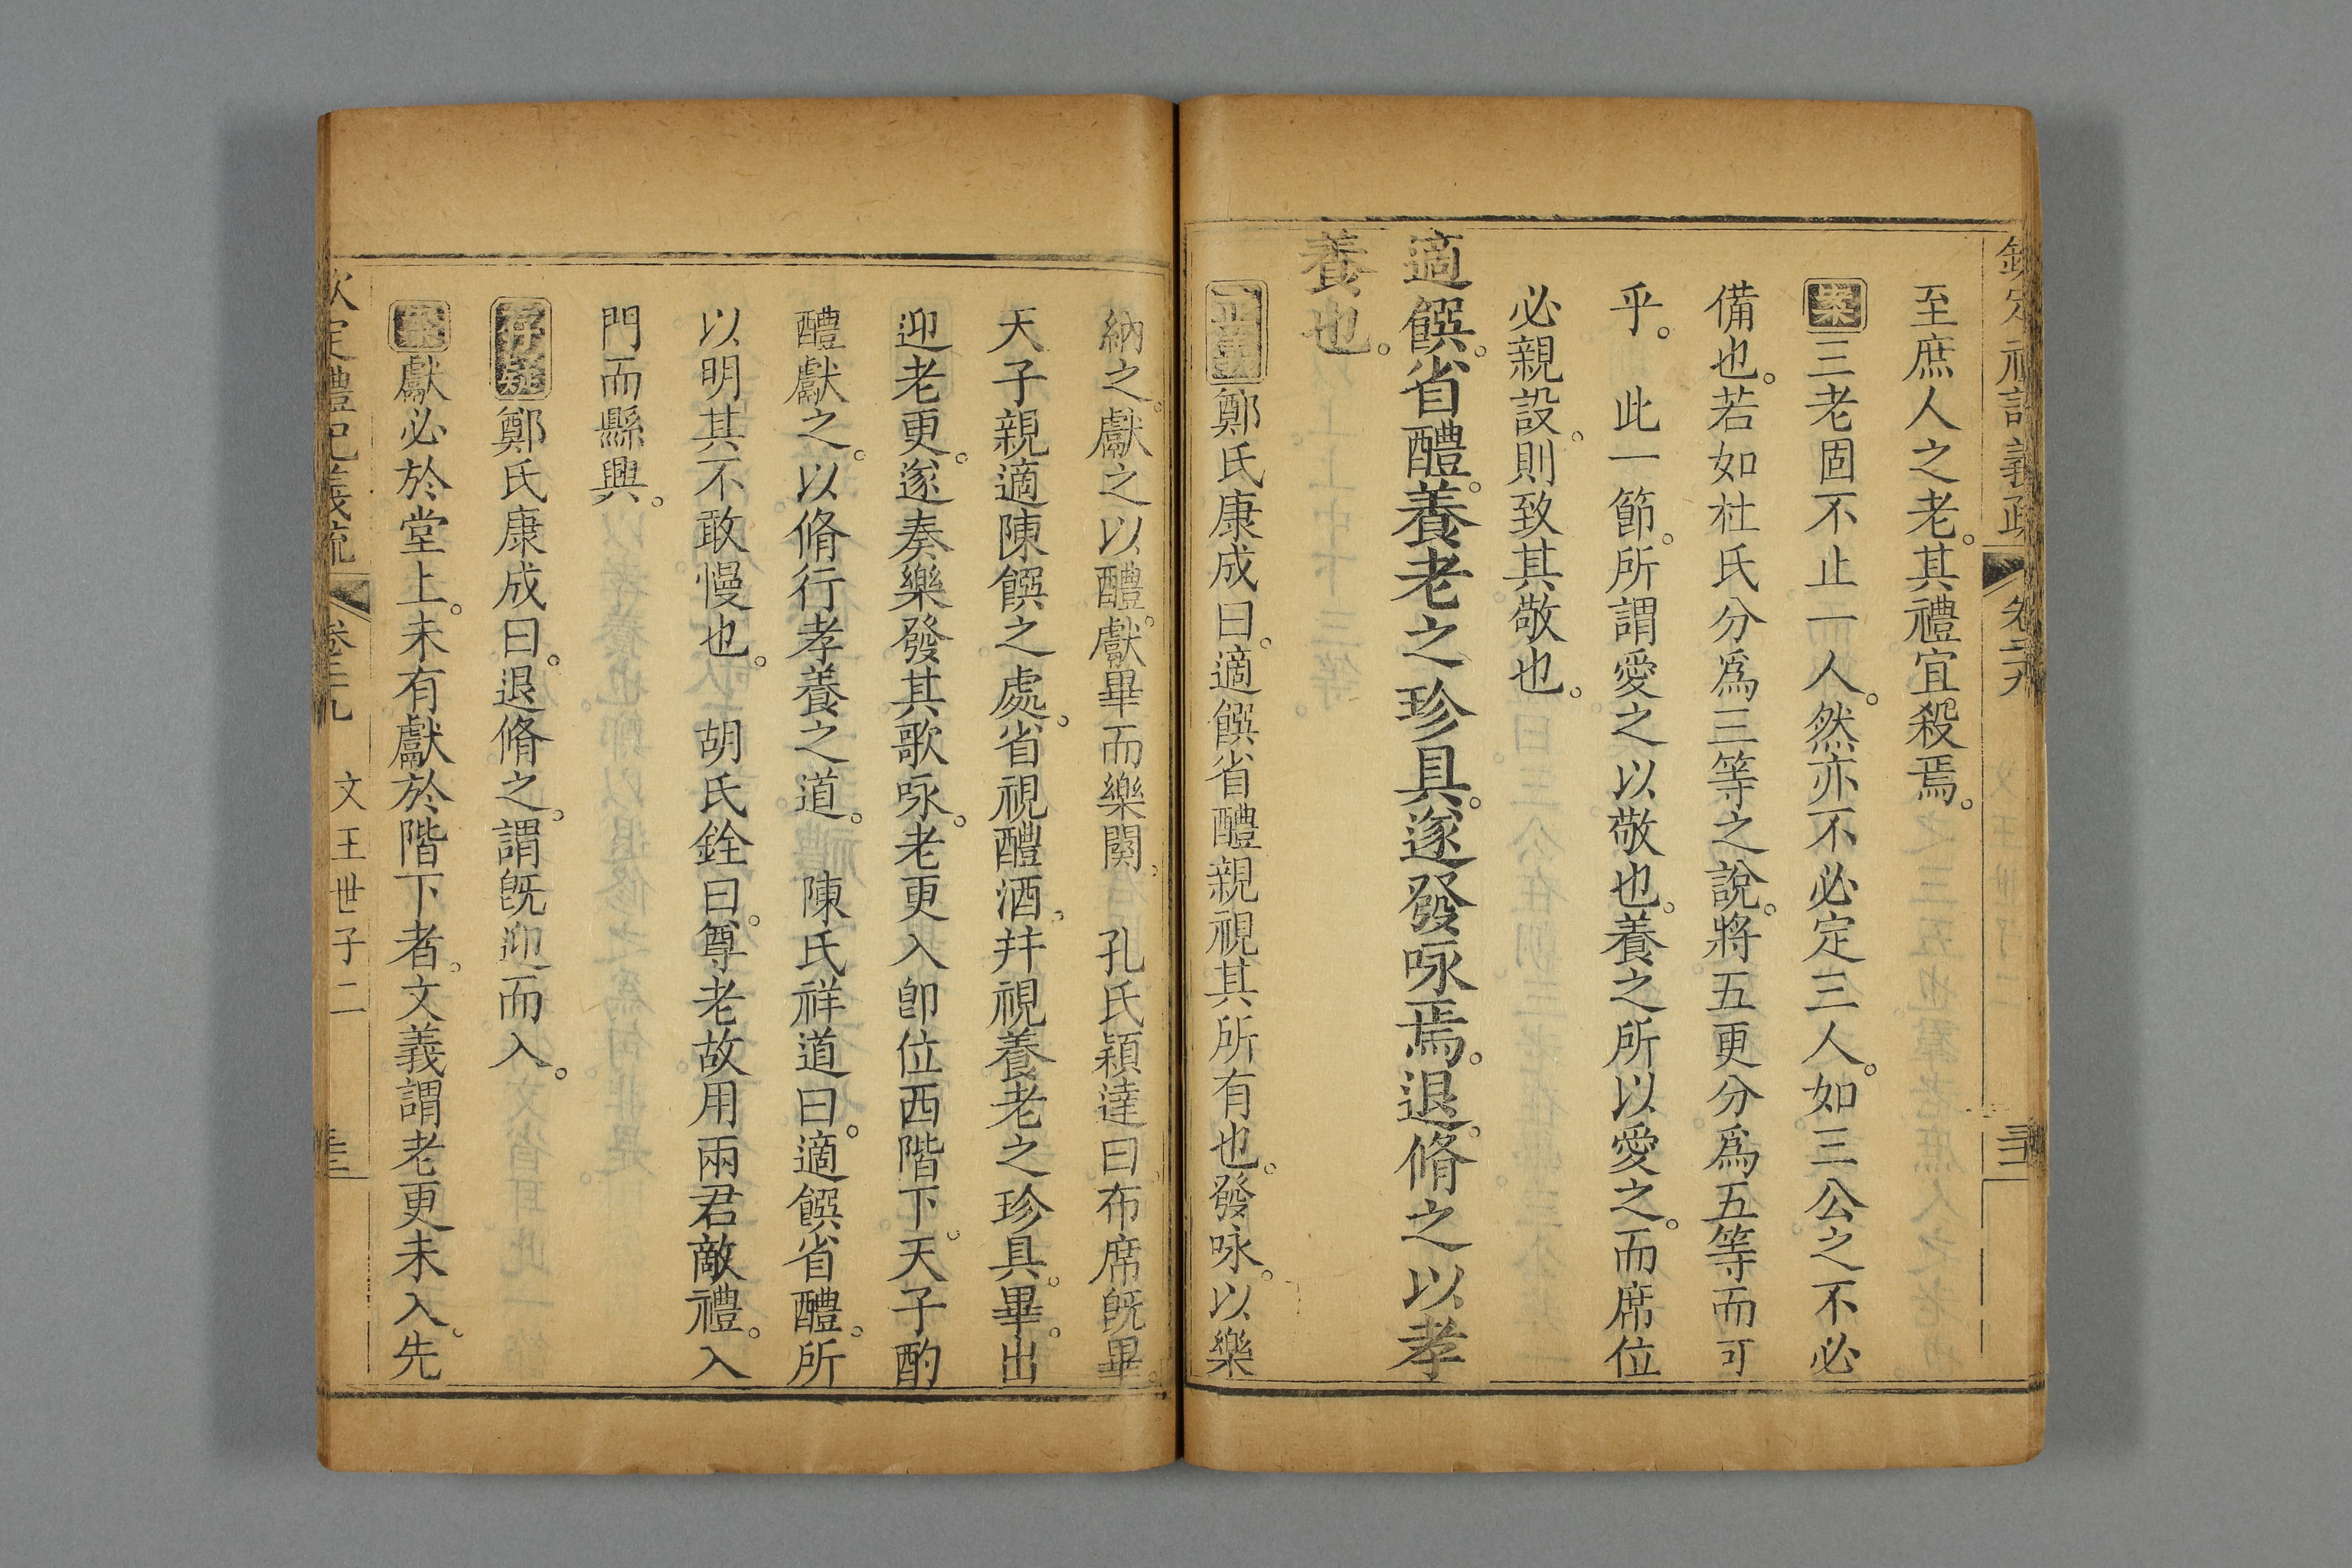 至庶人之老。其禮宜殺焉。
案三老固不止一人。然亦不必定三人。如三公之不必
備也。若如杜氏分爲三等之說。將五更分爲五等而可
乎。 此一節。所謂愛之以敬也。養之所以愛之。而席位
必親設。則致其敬也。
適饌。省醴。養老之珍具。遂發咏焉。退。脩之以孝
養也。
正義鄭氏康成曰。適饌省醴親視其所有也。發咏。以樂
納之。獻之以醴。獻畢而樂闋。 孔氏穎達曰。布席旣畢。
天子親適陳饌之處。省視醴酒。幷視養老之珍具。畢。出
迎老更。遂奏樂發其歌咏。老更入卽位西階下。天子酌
醴獻之。以脩行孝養之道。 陳氏祥道曰。適饌省醴。所
以明其不敢慢也。 胡氏銓曰。尊老故用兩君敵禮。入
門而縣興。
存疑鄭氏康成曰。退脩之。謂旣迎而入。
案獻必於堂上。未有獻於階下者。文義謂老更未入。先
欽定禮記義疏 卷二十九 文王世子二